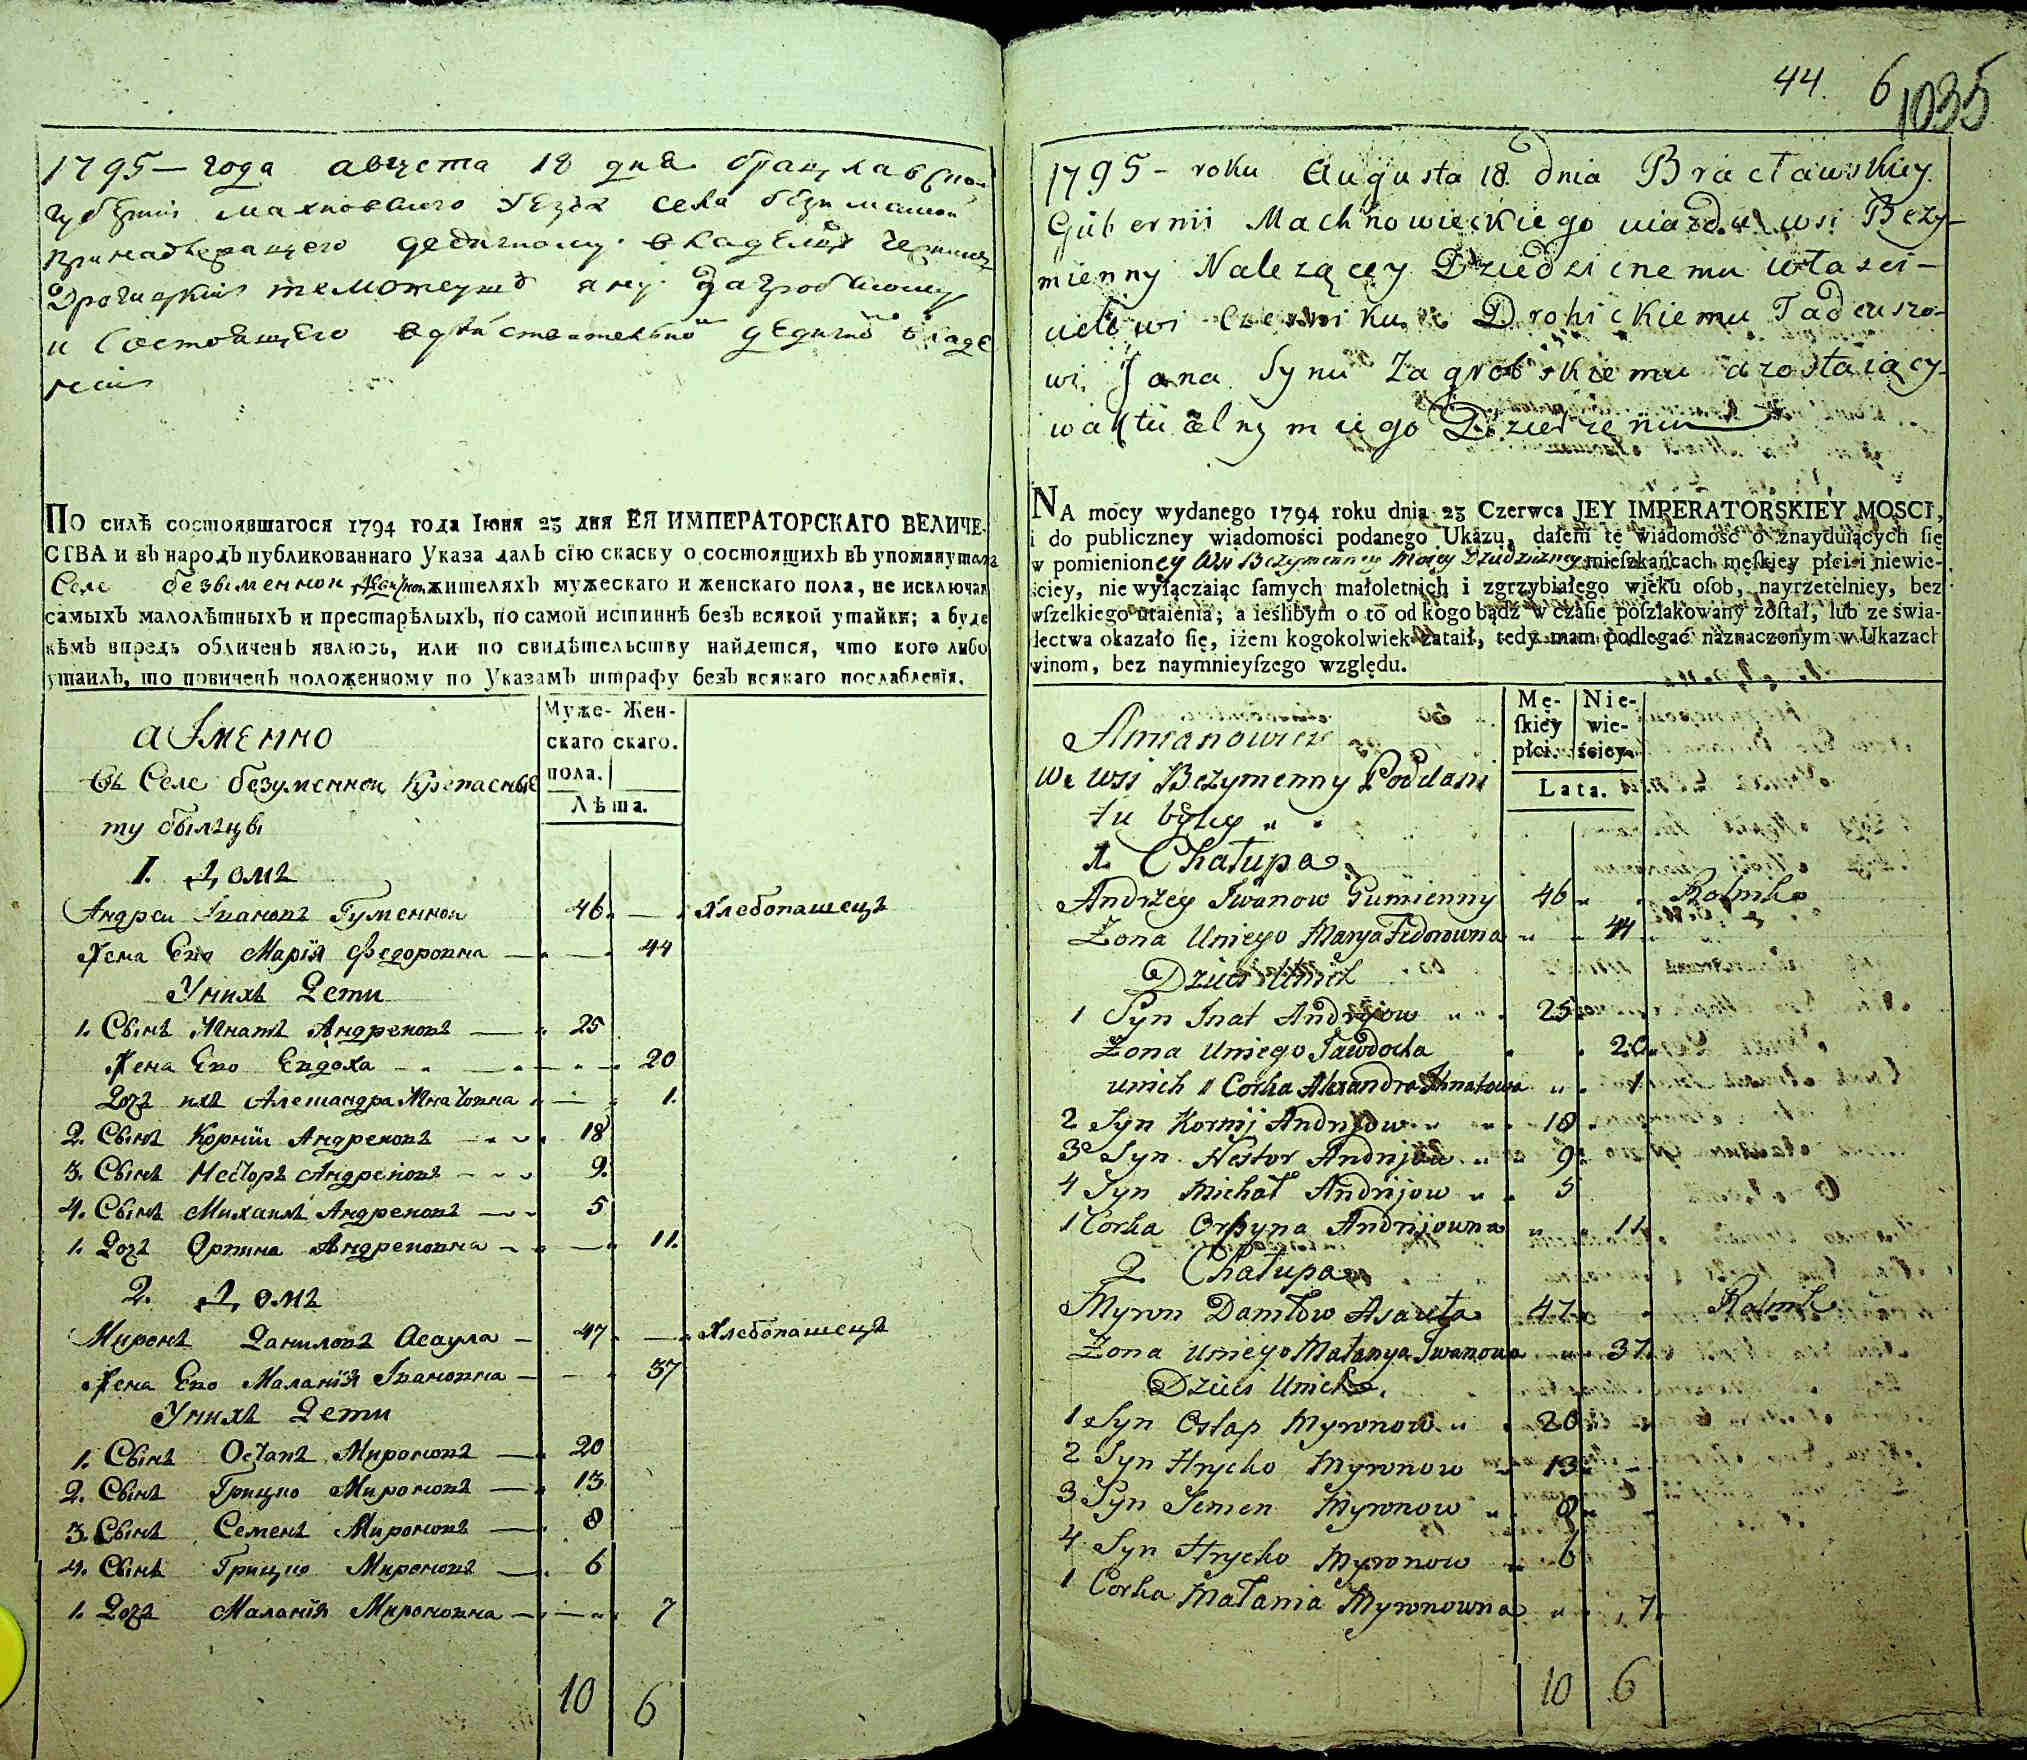 1795 – года августа 18 дня брацлавской
губернии махновского уезда села безимянной
принадлежащего дедичному
и состоящего в действительной дедичной владе
нии
По силѣ состоявшагося 1794 года Іюня 23 дня ЕЯ ИМПЕРАТОРСКАГО ВЕЛИЧЕ-
СТВА и въ народъ публикованнаго Указа далъ сїю скаску о состоящихъ въ упомянутомъ
Селе безыменной жителяхъ мужескаго и женскаго пола, не исключая
самыхъ малолѣтныхъ и престарѣлыхъ, по самой истиннѣ безъ всякой утайки; а буде
кѣмъ впредь обличенъ явлюсь, или по свидѣтельству найдется, что кого либо
утаилъ, то повиненъ положенному по Указамъ штрафу безъ всякаго послабленїя.
а Іменно
Муже- Жен-
скаго скаго.
пола.
Лѣта.
Въ Селе безуменной Крепасные
ту былцы
1. Домъ
Андреи Ивановъ Гуменнои 46. — Хлебопашецъ
Жена Его Марїя Федоровна — 44
Унихъ Дети
1. Сынъ Игнатъ Андреиовъ — 25
Жена Его Евдоха — 20
Дочь ихъ Алешандра Игнатовна — 1.
2. Сынъ Корнїи Андреиовъ — 18
3. Сынъ Несторъ Андреиовъ — 9.
4. Сынъ Михаилъ Андреиовъ — 5
1. Дочь Орпина Андреиовна — 11.
2. Домъ
Миронъ Даниловъ Асаула — 47 — Хлебопашецъ
Жена Его Маланїя Ивановна — 37
Унихъ Дети
1. Сынъ Остапъ Мироновъ — 20
2. Сынъ Грицко Мироновъ — 13
3. Сынъ Семенъ Мироновъ — 8
4. Сынъ Грицко Мироновъ — 6
1. Дочь Маланїя Мироновна — 7
10 6
44. 6 1035
1795 – roku Augusta 18. dnia Bracławskiey
Gubernii Machnowieckiego uiazdu wsi Bezy-
mienny Nalezącey Dziedzicnemu własci-
cielowi Czesniku Drohickiemu Tadeuszo-
wi Jana Synu Zagrobskiemu a zostaiący
w aktualnym iego Dzierżeniu
NA mocy wydanego 1794 roku dnia 23 Czerwca JEY IMPERATORSKIEY MOSCI,
i do publiczney wiadomości podanego Ukazu, dałem tę wiadomość o znayduiących ſię
w pomienioney Wsi Bezymenney moiey Dziedziczney mieſzkańcach męſkiey płci i niewie-
ściey, nie wyłączaiąc ſamych małoletnich i zgrzybiałego wieku oſob, nayrzetelniey, bez
wſzelkiego utaienia; a ieślibym o to od kogo bądź w czaſie poſzlakowany zoſtał, lub ze świa-
dectwa okazało ſię, iżem kogokolwiek zataił, tedy mam podlegać naznaczonym w Ukazach
winom, bez naymnieyſzego względu.
Amianowicie
Mę- Nie-
ſkiey wie-
płci. ściey.
Lata.
We wsi Bezymenny Poddani
tu bylcy
1. Chałupa
Andrzey Iwanow Gumienny 46 Rolnik
Żona Uniego Marya Fedorowna 44
Dzieci Unich
1 Syn Inat Andrijow 25
Żona Uniego Jawdocha 20
unich 1 Corka Alexandra Ihnatowna 1
2 Syn Kornij Andrijow 18
3 Syn Nestor Andrijow 9
4 Syn Michał Andrijow 5
1 Corka Orpyna Andrijowna 11
2 Chałupa
Myron Daniłow Asauła 47 Rolnik
Żona Uniego Małanya Iwanowa 37
Dzieci Unich.
1 Syn Ostap Myronow 20
2 Syn Hrycko Myronow 13
3 Syn Semen Myronow 8
4 Syn Hrycko Myronow 6
1 Corka Małania Myronowna 7
10 6